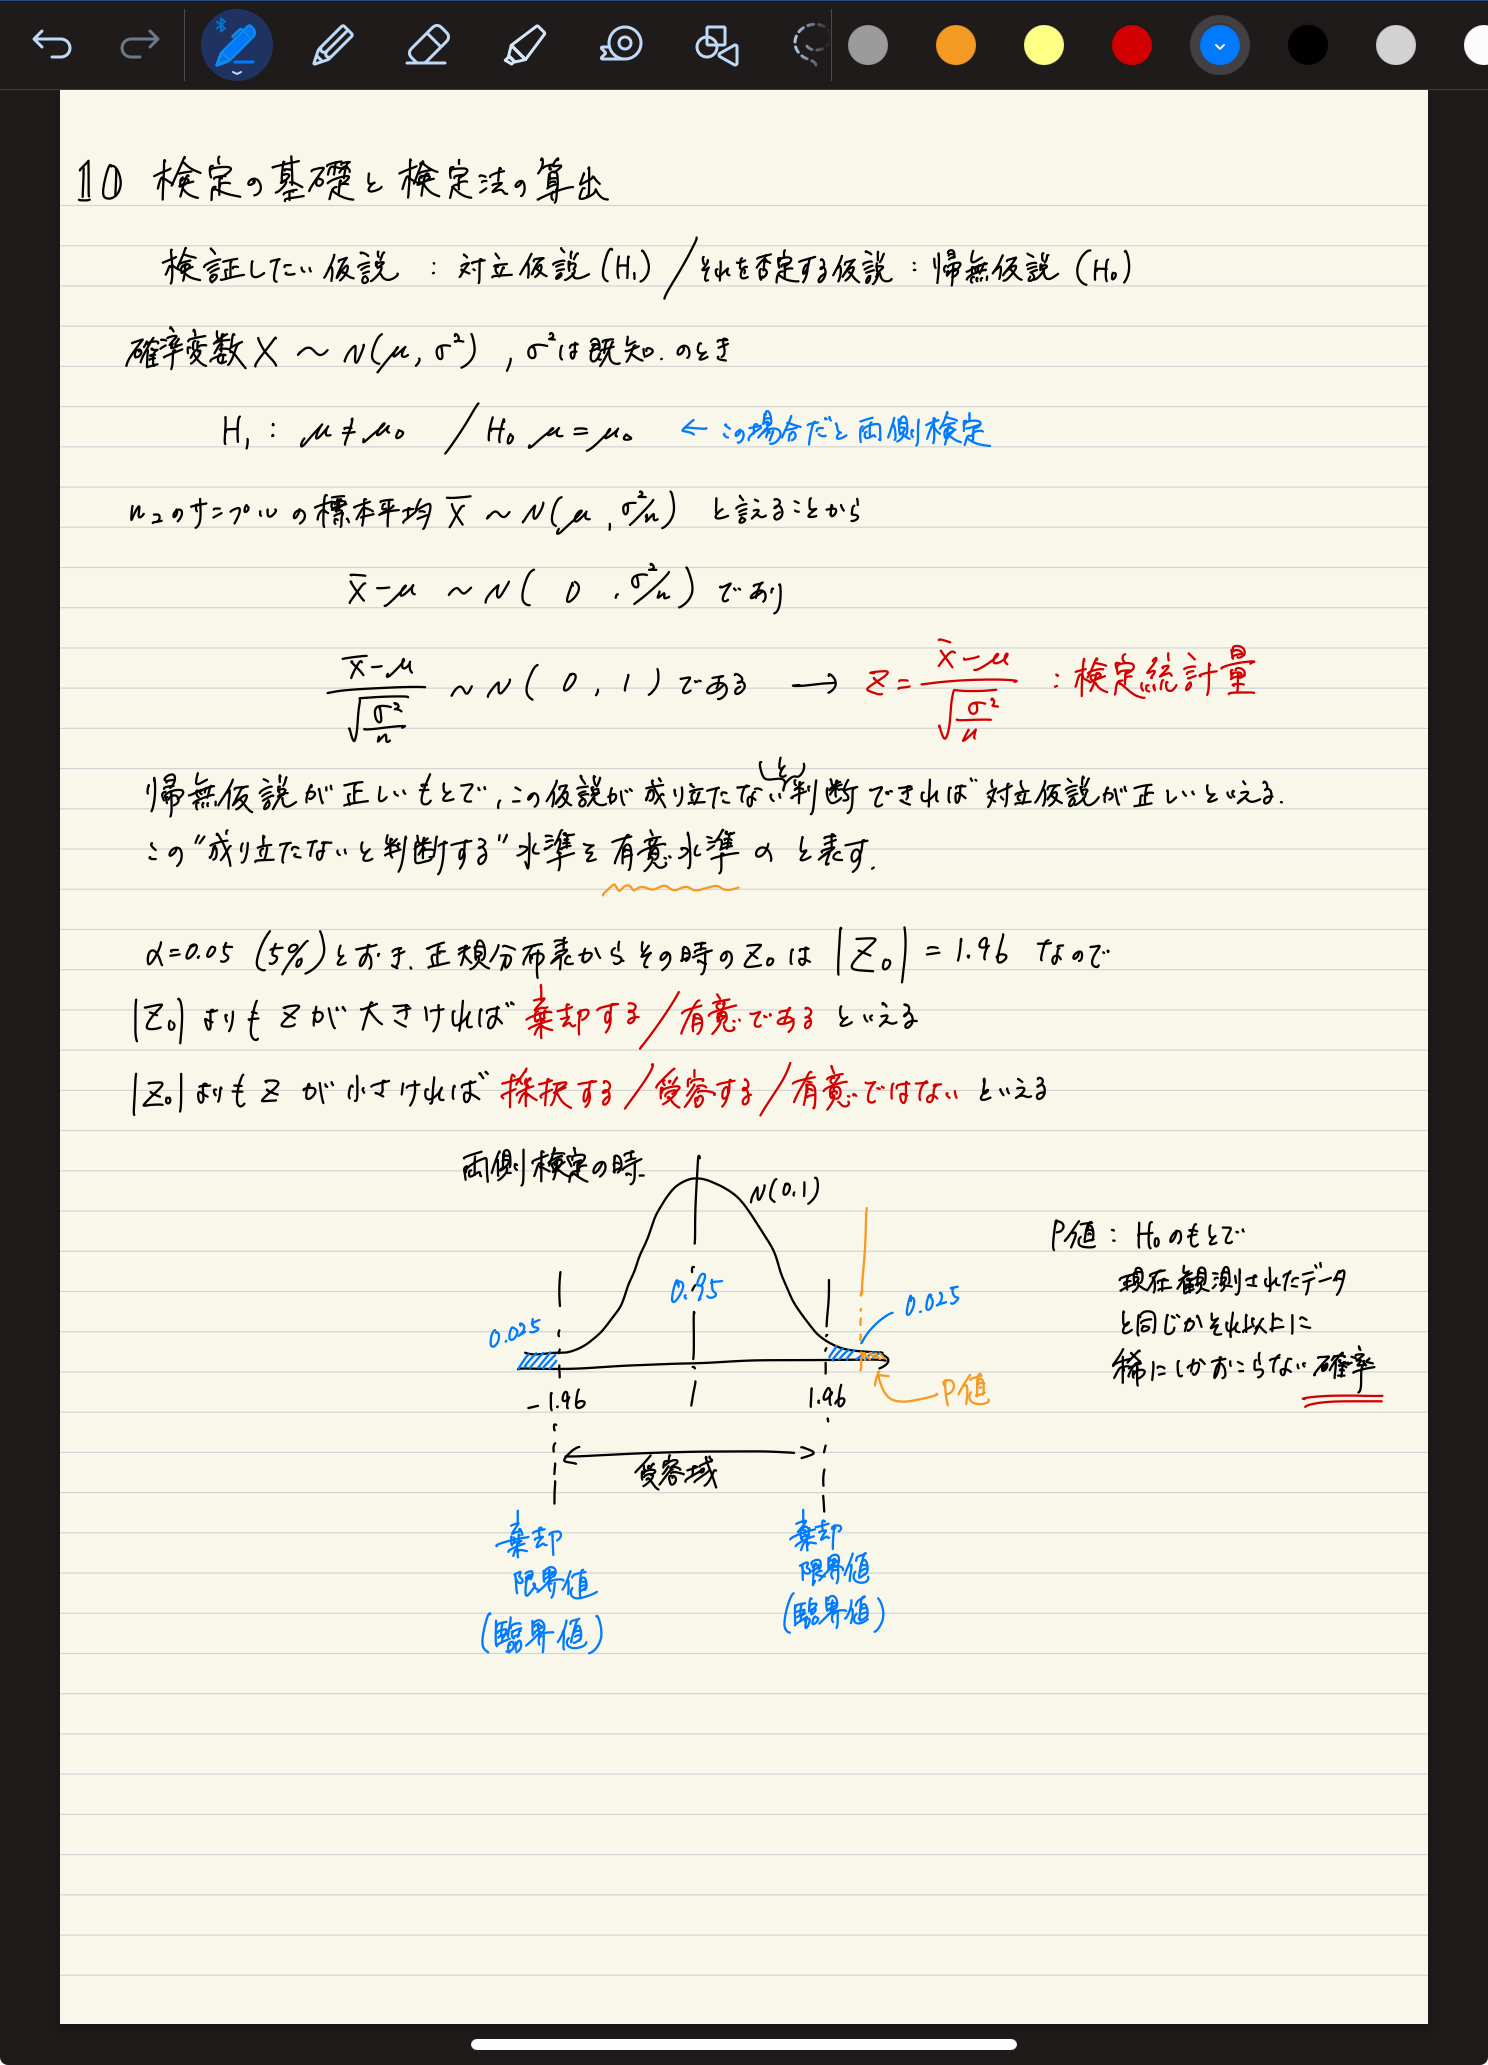 10 検定の基礎と検定法の算出
検証したい仮説 : 対立仮説 (H₁) / それを否定する仮説 : 帰無仮説 (H₀)
確率変数 X ~ N(μ, σ²) , σ²は既知. のとき
H₁ : μ ≠ μ₀ / H₀ μ = μ₀ ← この場合だと両側検定
nコのサンプルの標本平均 X̄ ~ N(μ, σ²/n) と言えることから
X̄-μ ~ N( 0 , σ²/n) であり
(X̄-μ)/√(σ²/n) ~ N( 0, 1 ) である → Z = (X̄-μ)/√(σ²/n) : 検定統計量
帰無仮説が正しいもとで, この仮説が成り立たないと判断できれば対立仮説が正しいといえる.
この"成り立たないと判断する"水準を有意水準 α と表す.
α=0.05 (5%)とおき, 正規分布表からその時のZ₀は |Z₀| = 1.96 なので
|Z₀| よりも Z が大きければ 棄却する/有意である といえる
|Z₀| よりも Z が小さければ 採択する/受容する/有意ではない といえる
両側検定の時
N(0,1)
P値 : H₀のもとで
現在観測されたデータ
と同じかそれ以上に
稀にしかおこらない確率
0.95
0.025
0.025
-1.96
1.96
P値
受容域
棄却
限界値
(臨界値)
棄却
限界値
(臨界値)